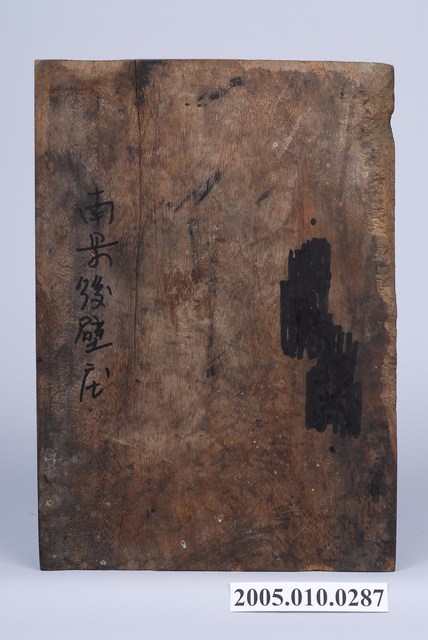 南昇後壁庄
2005.010.0287